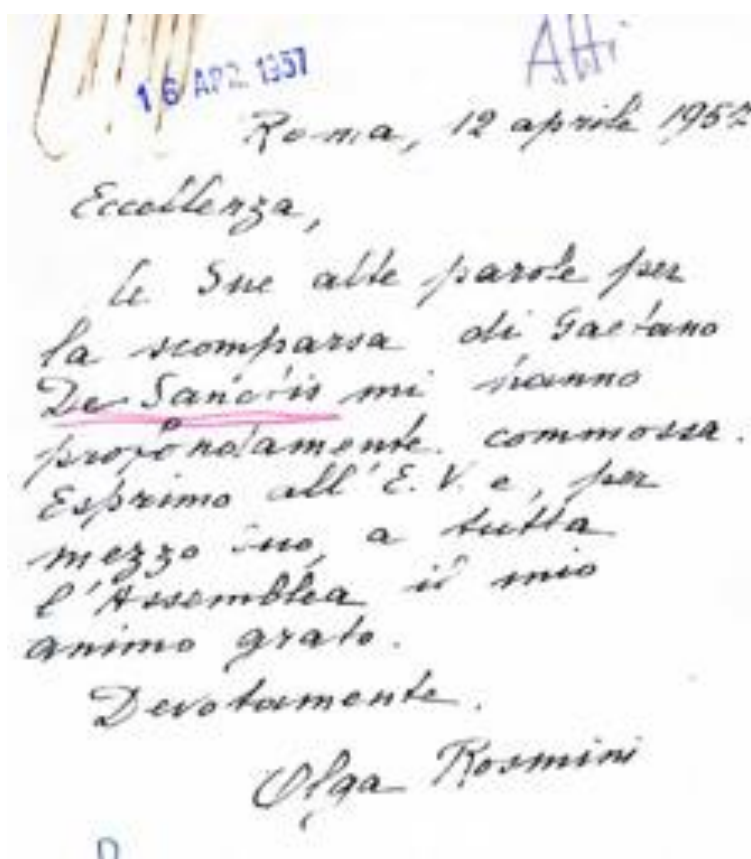 16 APR. 1957
Atti
Roma, 12 aprile 1957
Eccellenza,
Le Sue alte parole per
la scomparsa di Gaetano
De Sanctis mi hanno
profondamente commossa.
Esprimo all'E. V. e, per
mezzo suo, a tutta
l'Assemblea il mio
animo grato.
Devotamente.
Olga Rosmini